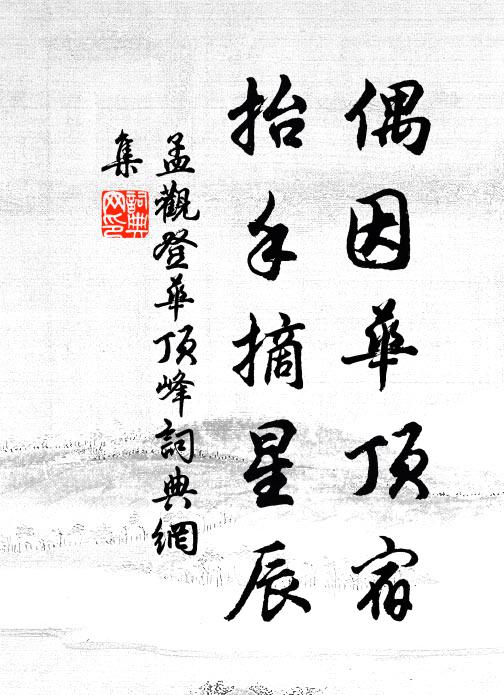 偶因華頂宿
抬手摘星辰
孟觀登華頂峰詞典網
集
詞典
网印